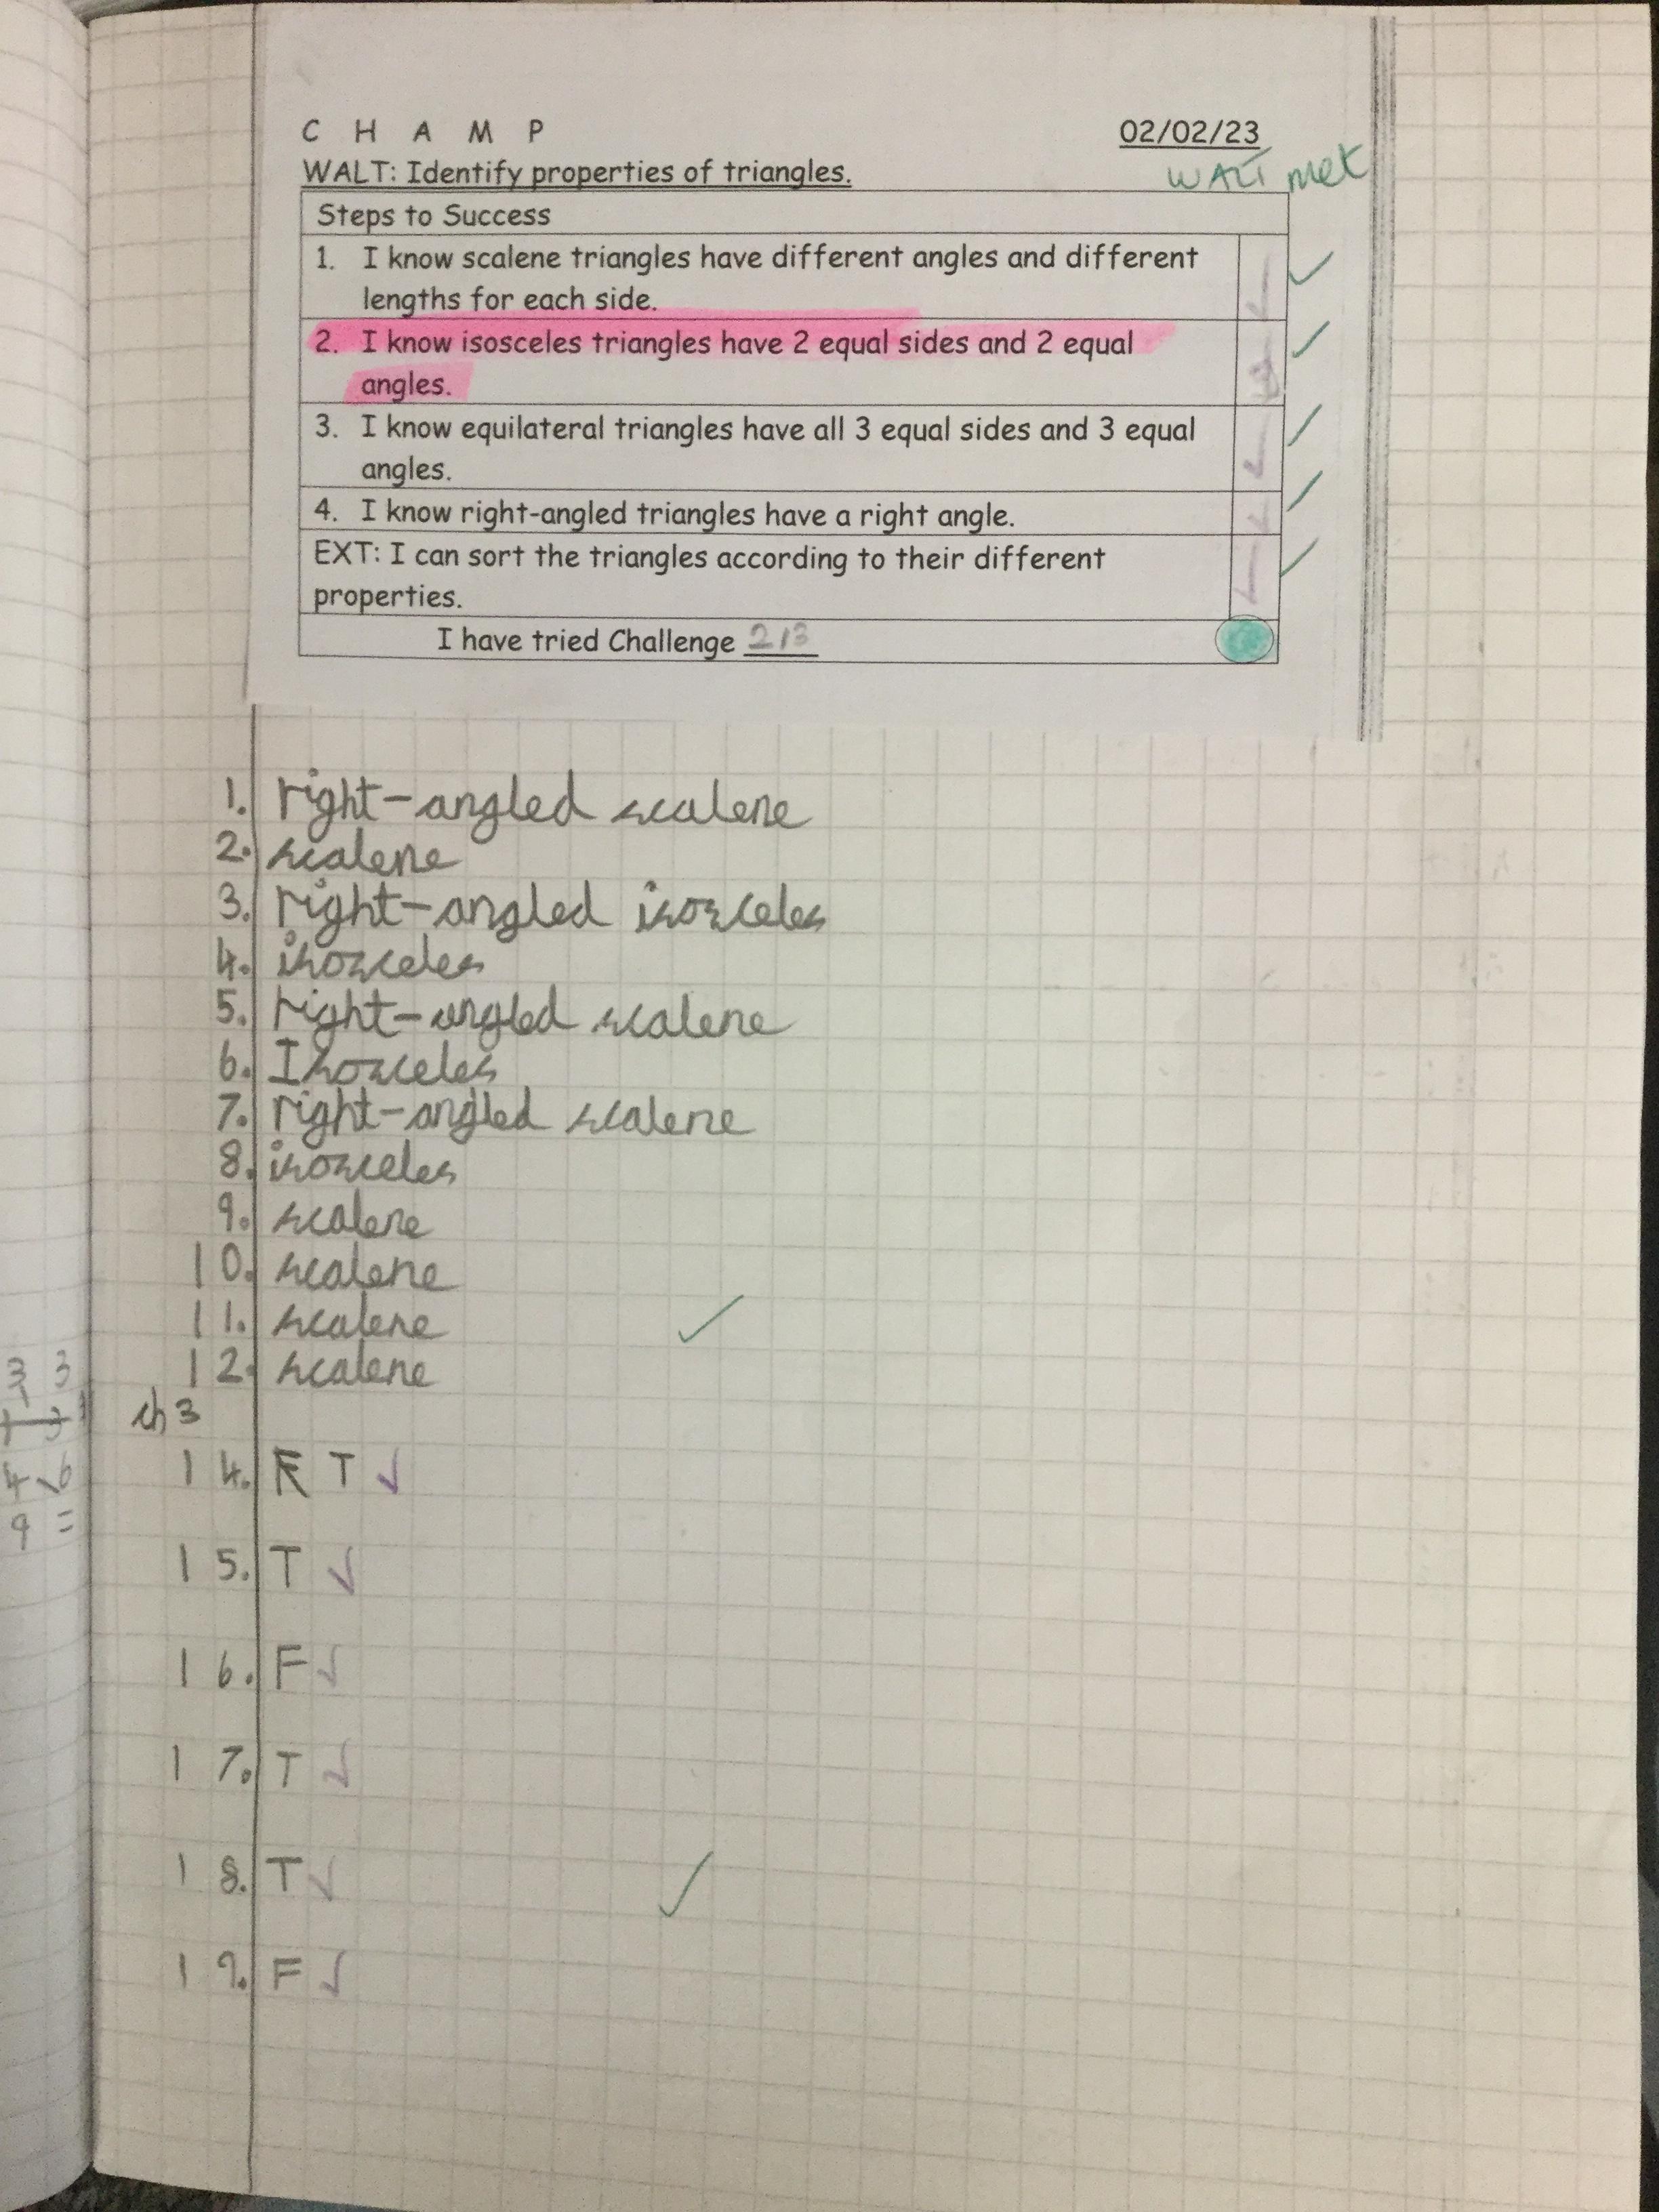 C H A M P 02/02/23
WALT: Identify properties of triangles. WALT met
Steps to Success
1. I know scalene triangles have different angles and different
lengths for each side.
2. I know isosceles triangles have 2 equal sides and 2 equal
angles.
3. I know equilateral triangles have all 3 equal sides and 3 equal
angles.
4. I know right-angled triangles have a right angle.
EXT: I can sort the triangles according to their different
properties.
I have tried Challenge 2/3
1. right-angled scalene
2. scalene
3. right-angled isosceles
4. isosceles
5. right-angled scalene
6. Isosceles
7. right-angled scalene
8. isosceles
9. scalene
10. scalene
11. scalene
12. scalene
ch3
14. T
15. T
16. F
17. T
18. T
19. F